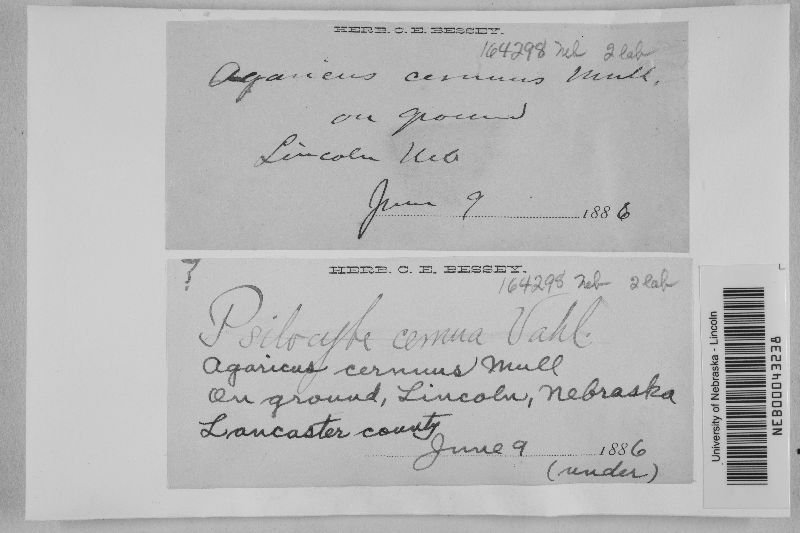 HERB. C. E. BESSEY.
164298 Neb 2 lab
Agaricus cernuus Mull.
on ground
Lincoln Neb
June 9 1886
?
HERB. C. E. BESSEY.
164298 Neb 2 lab
Psilocybe cernua Vahl.
Agaricus cernuus Mull
On ground, Lincoln, Nebraska
Lancaster county
June 9 1886
(under)
University of Nebraska - Lincoln
NEB00043238